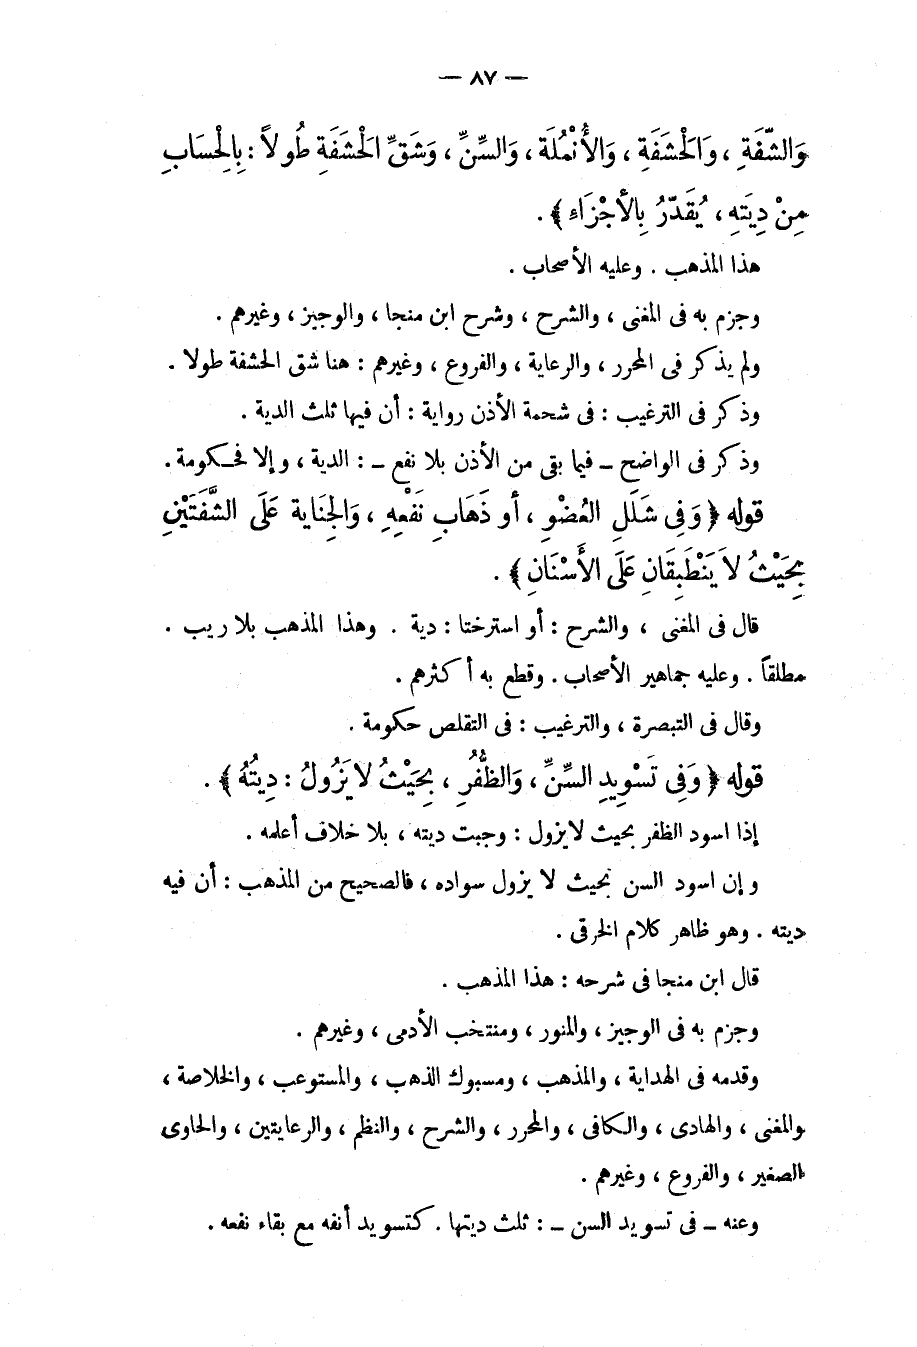 — ٨٧ —
وَالشَّفَةِ ، وَالْحَشَفَةِ ، وَالأُنْمُلَةِ ، وَالسِّنِّ ، وَشَقِّ الْحَشَفَةِ طُولاً : بِالْحِسَابِ
مِنْ دِيَتِهِ ، يُقَدَّرُ بِالأَجْزَاءِ ﴾ .
هذا المذهب . وعليه الأصحاب .
وجزم به فى المغنى ، والشرح ، وشرح ابن منجا ، والوجيز ، وغيرهم .
ولم يذكر فى المحرر ، والرعاية ، والفروع ، وغيرهم : هنا شق الحشفة طولا .
وذكر فى الترغيب : فى شحمة الأذن رواية : أن فيها ثلث الدية .
وذكر فى الواضح – فيما بقى من الأذن بلا نفع – : الدية ، وإلا فحكومة .
قوله ﴿ وَفِى شَلَلِ العُضْوِ ، أو ذَهَابِ نَفْعِهِ ، وَالْجِنَايةِ عَلَى الشَّفَتَيْنِ
بِحَيْثُ لاَ يَنْطَبِقَانِ عَلَى الأَسْنَانِ ﴾ .
قال فى المغنى ، والشرح : أو استرختا : دية . وهذا المذهب بلا ريب .
مطلقاً . وعليه جماهير الأصحاب . وقطع به أكثرهم .
وقال فى التبصرة ، والترغيب : فى التقلص حكومة .
قوله ﴿ وَفِى تَسْوِيدِ السِّنِّ ، وَالظُّفُرِ ، بِحَيْثُ لاَ يَزُولُ : دِيتُهُ ﴾ .
إذا اسود الظفر بحيث لايزول : وجبت ديته ، بلا خلاف أعلمه .
وإن اسود السن بحيث لا يزول سواده ، فالصحيح من المذهب : أن فيه
ديته . وهو ظاهر كلام الخرقى .
قال ابن منجا فى شرحه : هذا المذهب .
وجزم به فى الوجيز ، والمنور ، ومنتخب الأدمى ، وغيرهم .
وقدمه فى الهداية ، والمذهب ، ومسبوك الذهب ، والمستوعب ، والخلاصة ،
والمغنى ، والهادى ، والكافى ، والمحرر ، والشرح ، والنظم ، والرعايتين ، والحاوى
الصغير ، والفروع ، وغيرهم .
وعنه – فى تسويد السن – : ثلث ديتها . كتسويد أنفه مع بقاء نفعه .